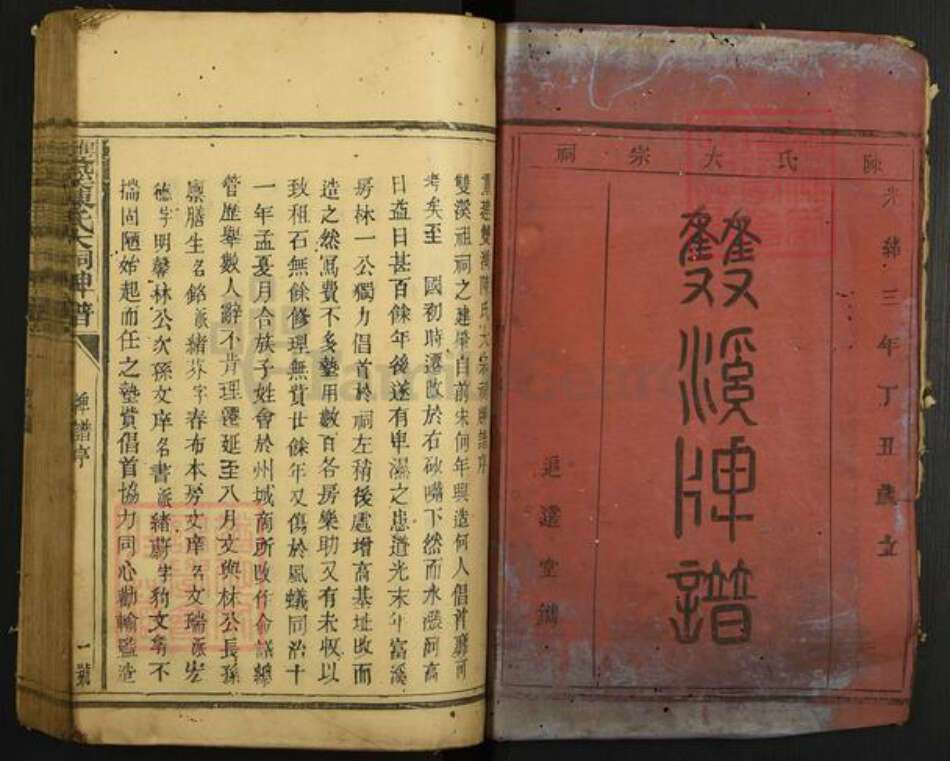 陳氏大宗祠
光緒三年丁丑歲立
雙溪牌譜
追遠堂鐫
重建雙溪陳氏大宗祠牌譜序
雙溪祖祠之建肇自前宋何年興造何人倡首邈可
考矣至 國初時遷改於右砂嘴下然而水漲河高
日益日甚百餘年後遂有卑濕之患道光末年富溪
房林一公獨力倡首於祠左稍後處增高基址改而
造之然寫費不多墊用數百各房樂助又有未收以
致租石無餘修理無貲廿餘年又傷於風蟻同治十
一年孟夏月合族子姓會於州城商所改作僉議經
管歷舉數人辭不肯理遷延至八月文與林公長孫
廩膳生名銘派緒芬字春布本房文庠名文瑞派宏
德字明馨林公次孫文庠名書派緒蔚字豹文等不
揣固陋始起而任之墊貲倡首協力同心勸輸監造
陳氏大祠牌譜
牌譜序
一號